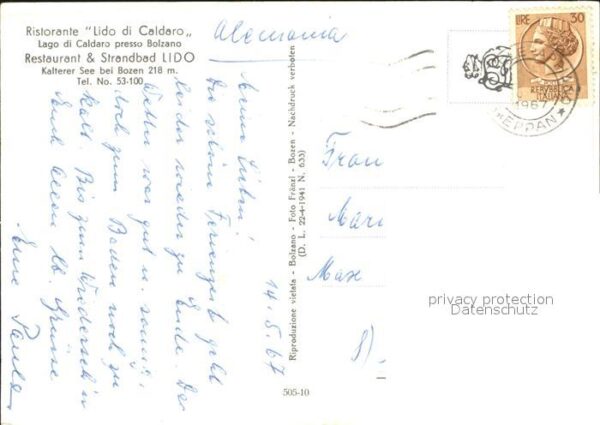 Ristorante "Lido di Caldaro„
Lago di Caldaro presso Bolzano
Restaurant & Strandbad LIDO
Kalterer See bei Bozen 218 m.
Tel. No. 53-100
Alemania
14.5.67
Meine Lieben!
Die schöne Ferienzeit geht
leider wieder zu Ende. Das
Wetter war gut u. sonnig,
doch zum Baden noch zu
kalt. Bis zum Wiedersehn
Euch allen lb. Grüsse
Eure Paula
Riproduzione vietata - Bolzano - Foto Fränzl - Bozen - Nachdruck verboten
(D. L. 22-4-1941 N. 633)
505-10
LIRE 30
REPVBBLICA
ITALIANA
1967
EPPAN
Frau
Mari
Max
privacy protection
Datenschutz